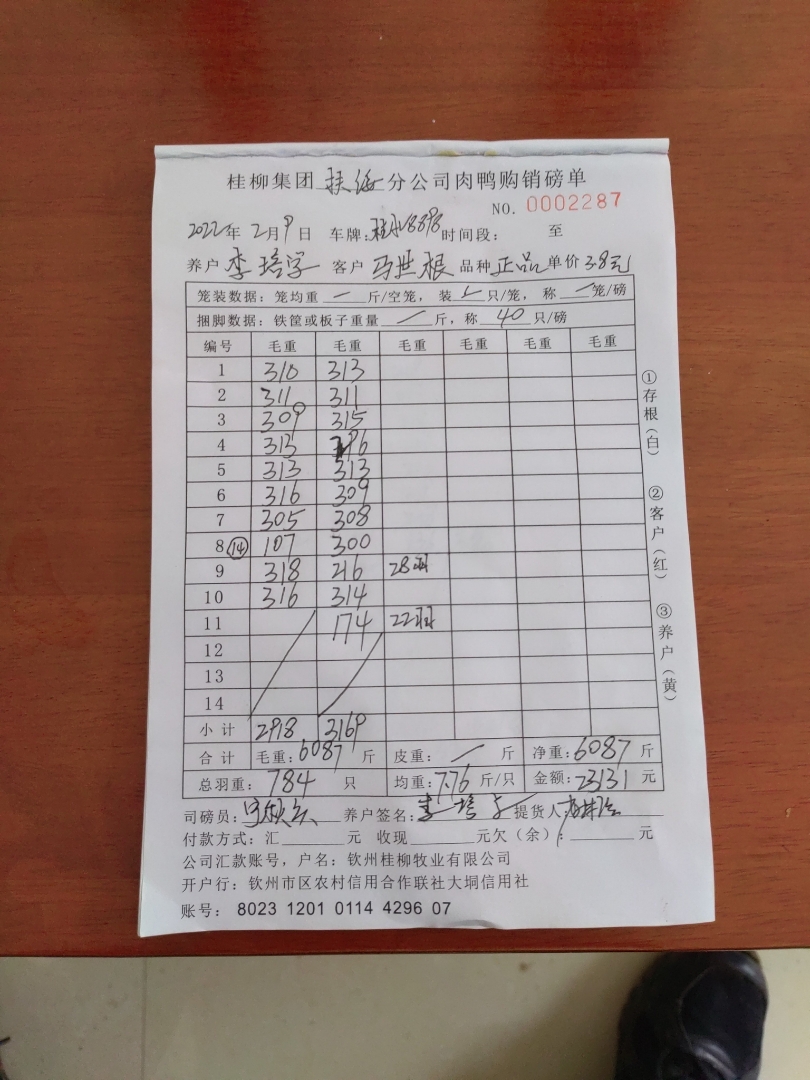 桂柳集团 扶绥 分公司肉鸭购销磅单
NO. 0002287
2022年 2月9日 车牌: 时间段: 至
养户 李培学 客户 马世根 品种 正品 单价 3.8元
笼装数据: 笼均重 一 斤/空笼, 装 只/笼, 称 一 笼/磅
捆脚数据: 铁筐或板子重量 斤, 称 40 只/磅
编号 毛重 毛重 毛重 毛重 毛重 毛重
1 310 313
2 311 311
3 309 315
4 313 296
5 313 313
6 316 309
7 305 308
8 ⑭ 107 300
9 318 216 28羽
10 316 314
11 174 22羽
12
13
14
小计 2918 3169
合计 毛重: 6087 斤 皮重: 斤 净重: 6087 斤
总羽重: 784 只 均重: 7.76 斤/只 金额: 23131 元
司磅员: 养户签名: 李培学 提货人
付款方式: 汇 元 收现 元欠(余): 元
公司汇款账号, 户名: 钦州桂柳牧业有限公司
开户行: 钦州市区农村信用合作联社大垌信用社
账号: 8023 1201 0114 4296 07
①存根(白)
②客户(红)
③养户(黄)